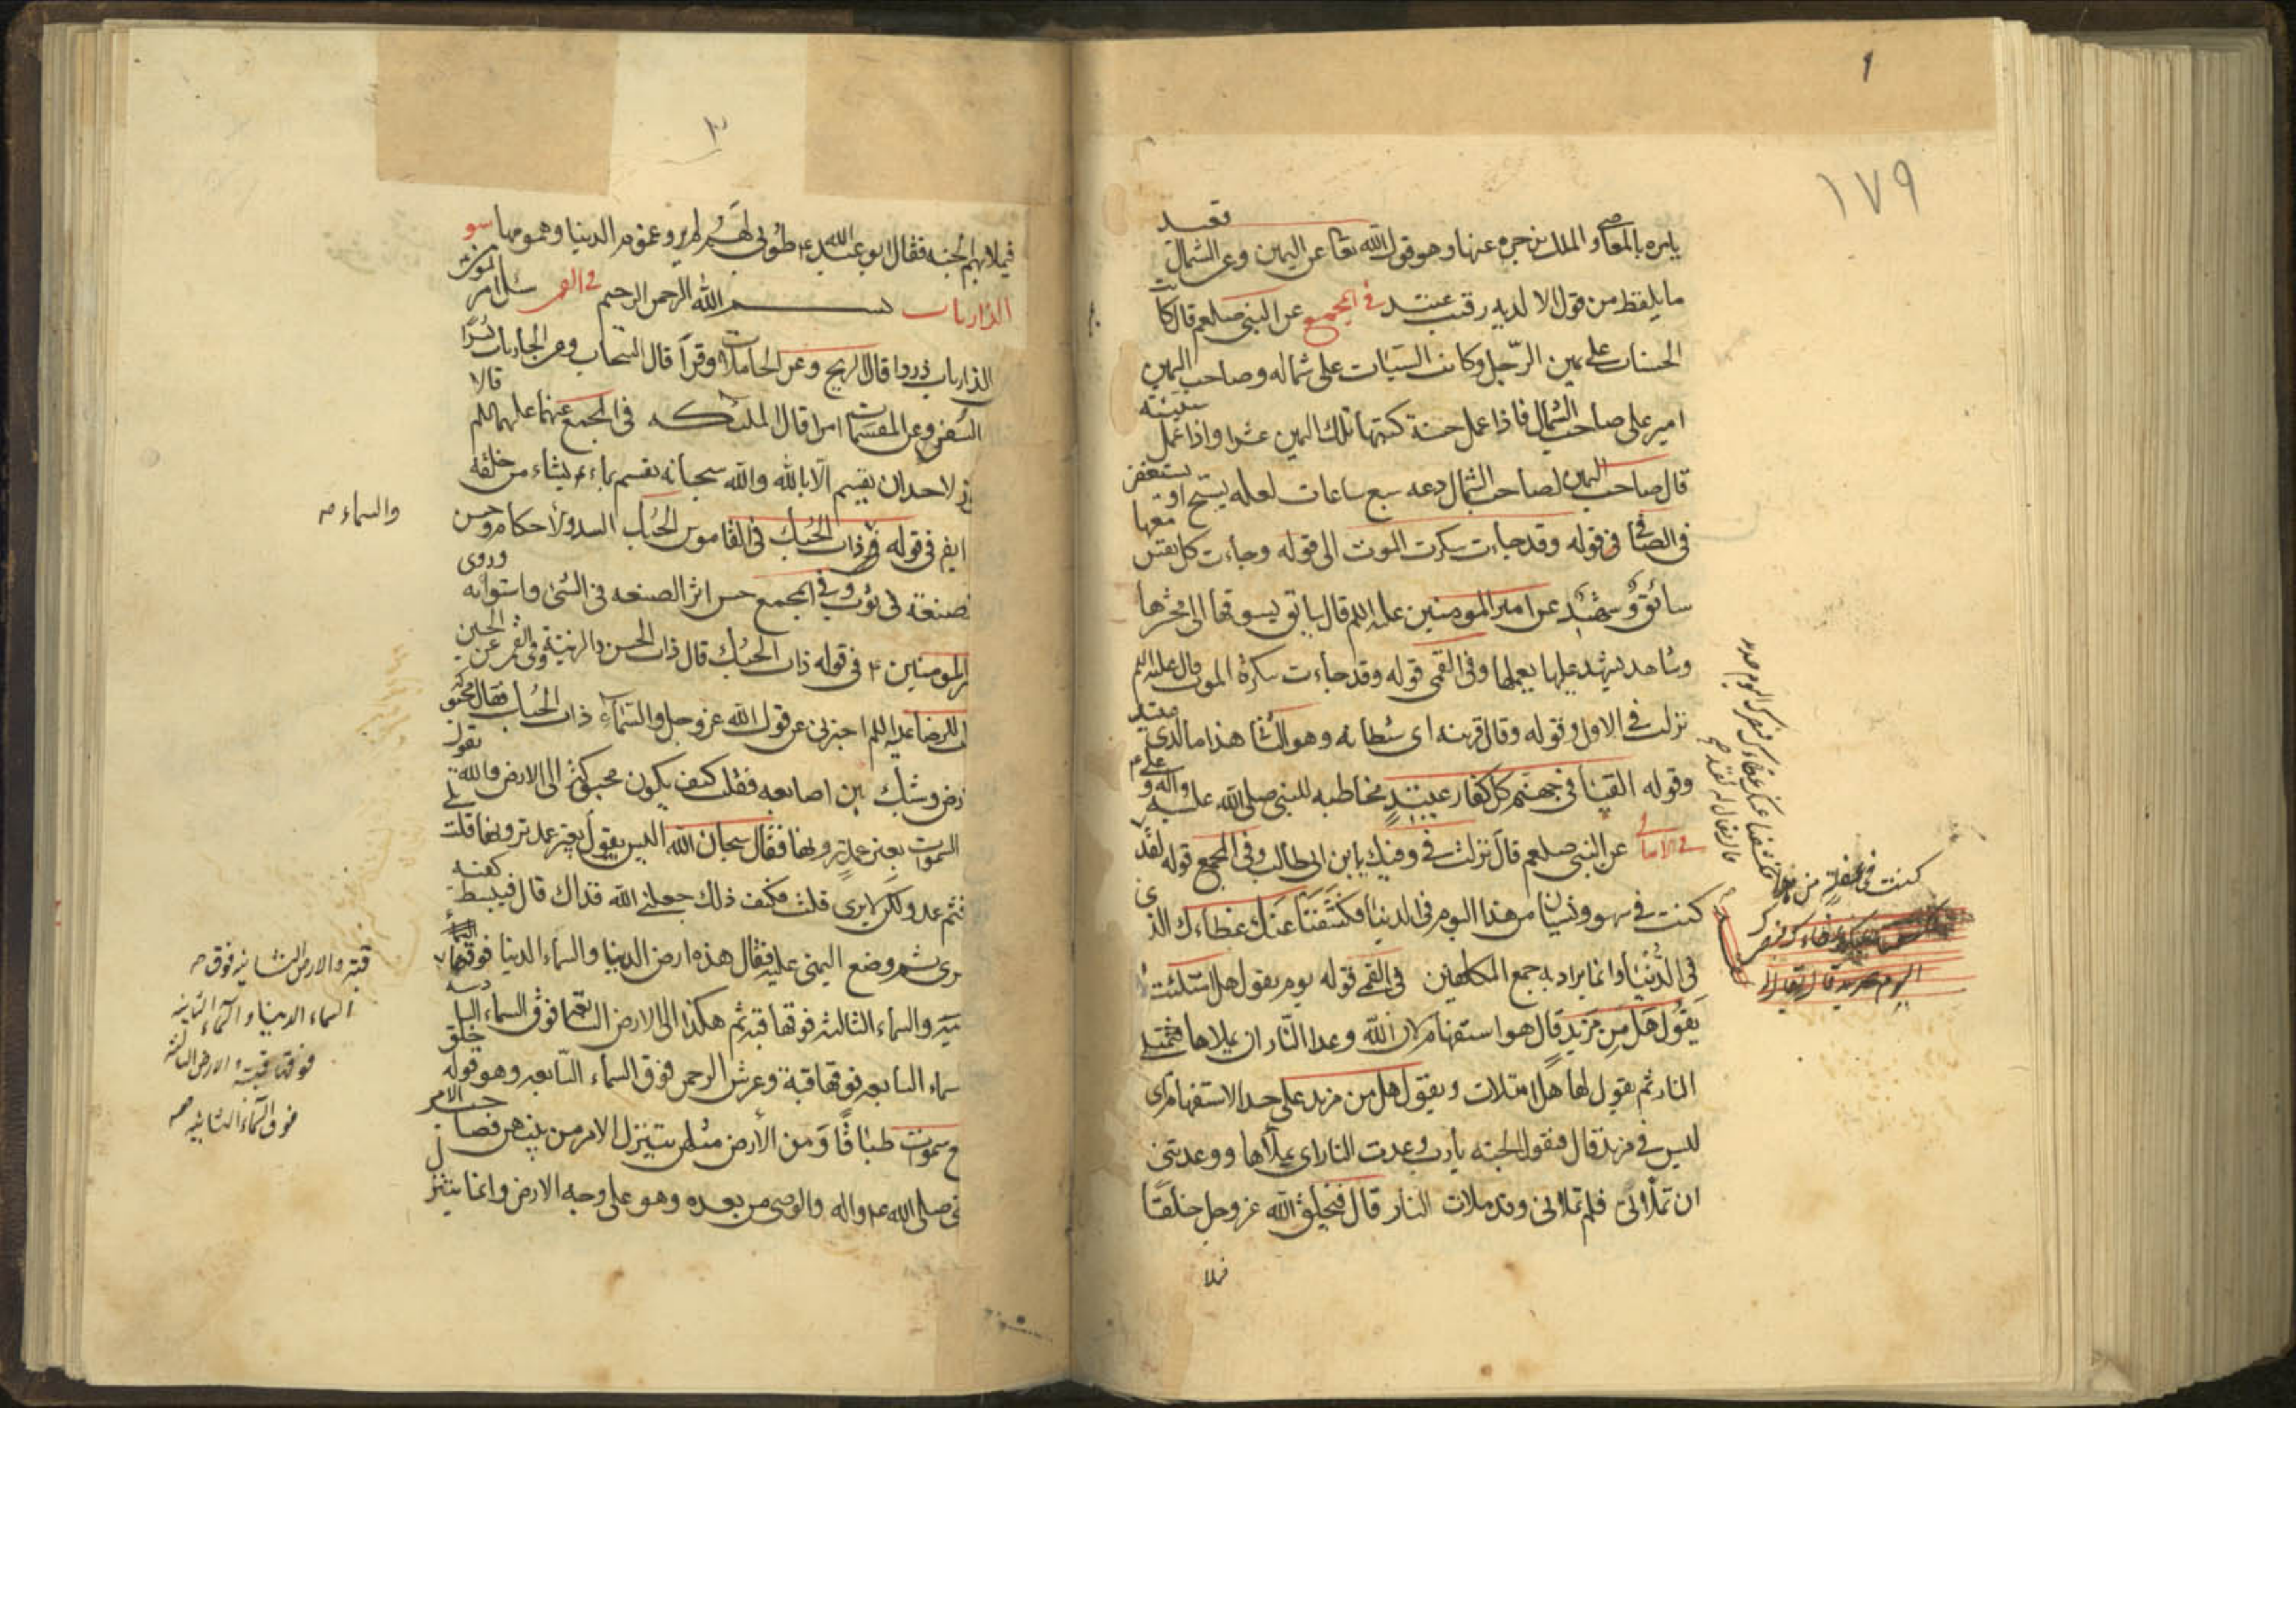 ١٧٩
يامره بالمعاصي والملك يزجره عنها وهو قول الله تعا عن اليمين وعن الشمال قعيد
ما يلفظ من قول الا لديه رقيب عتيد في المجمع عن النبي صلعم قال كاتب
الحسنات على يمين الرّجل وكاتب السيّئات على شماله وصاحب اليمين
امير على صاحب الشمال فاذا عمل حسنة كتبها ملك اليمين عشرا واذا عمل سيّئة
قال صاحب اليمين لصاحب الشمال دعه سبع ساعات لعله يسبّح او يستغفر
في الصافي في قوله وقد جاءت سكرت الموت الى قوله وجاءت كل نفس معها
سائق وشهيد عن امير المومنين عليه اللم قال سايق يسوقها الى محشرها
وشاهد يشهد عليها بعملها وفي القمي قوله وقد جاءت سكرة الموت قال عليه اللم
نزلت في الاول وقوله وقال قرينه اى شيطانه وهو الثا هذا ما لدي عتيد
وقوله القيا في جهنم كل كفار عنيد مخاطبه للنبي صلى الله عليه واله وعلي ع
في الامالي عن النبي صلعم قال نزلت في وفيك يا ابن ابي طالب وفي المجمع قوله لقد
كنت في سهو ونسيان من هذا اليوم في الدنيا فكشفنا عنك غطاءك الذى
في الدُّنيا وانما يراد به جمع المكلفين في القمي قوله يوم يقول هل امتلئت
يقول هل من مزيد قال هو استفهام لان الله وعدا النّار ان يملاها فتمتلى
النار ثم يقول لها هل امتلات ويقول هل من مزيد على حد الاستفهام اى
ليس في مزيد قال فتقول الجنه يا رب وعدت النار ان تملاها ووعدتني
ان تملأني فلم تملاني وقد ملات النار قال فيخلق الله عز وجل خلقًا
فملا
كنت في غفلة من هذا
فكشفنا عنك غطاءك فبصرك اليوم حديد
فيملا بهم الجنه فقال ابو عبد الله ع طوبى لهم لم يروا غموم الدنيا وهمومها سو
الذاريات بسم الله الرحمن الرحيم في القمي سئل امير المومنين
الذاريات ذروا قال الريح وعن الحاملات وقرًا قال السحاب وعن الجاريات يسرًا
السفن وعن المقسمات امرا قال الملئكه في المجمع عنهما عليهما اللم قالا
لا حد ان يقسم الّا بالله والله سبحانه يقسم بما يشاء من خلقه
ايض في قوله ذات الحبك في القاموس الحبك الشد والاحكام وحسن
صنعة في ثوب وفي المجمع حسن اثر الصنعه في الشئ واستوائه وروى
المومنين ع في قوله ذات الحبك قال ذات الحسن والزينة وفي القمي عن الحسين
للرضا عليه اللم اخبرني عن قول الله عز وجل والسماء ذات الحبك فقال محبوكة
وشبك بين اصابعه فقلت كيف يكون محبوكة الى الارض والله يقول
السموات بغير عمد ترونها فقال سبحان الله اليس يقول بغير عمد ترونها قلت بلى
فثم عمد ولكن لا يرى قلت فكيف ذلك جعلني الله فداك قال فبسط كفه
يسرى ثم وضع اليمنى عليه فقال هذه ارض الدنيا والسماء الدنيا فوقها
والسماء الثالثه فوقها قبه ثم هكذا الى الارض السابعه فوق السماء السادسه
سماء السابعه فوقها قبة وعرش الرحمن فوق السماء السّابعه وهو قوله خلق
سموات طباقًا ومن الأرض مثلهن يتنزل الامر بينهن فصاحب الامر
صلى الله عليه واله والوصى من بعده وهو على وجه الارض وانما يتنزل
والسماء
قبة والارض الثانيه فوق
السماء الدنيا والسماء الثانيه
فوقها قبة والارض الثالثه
فوق السماء الثانيه